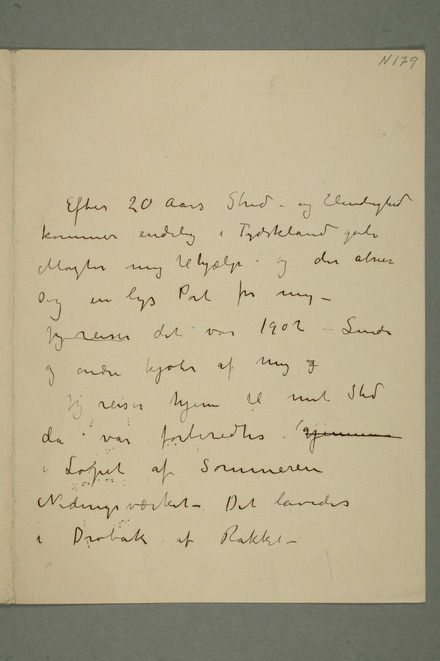 N 179
Efter 20 Aars Strid – og Elendighed
kommer endelig i Tydskland gode
Magter mig til hjælp – og der åbner
sig en lys Port for mig –
Jeg reiser det var 1902 – Linde
og andre kjøber af mig og
Jeg reiser hjem til mit Sted
da var forberedtes gjennem
i Løpet af Sommeren
Nidingsværket – Det lavedes
i Drøbak af Pakket –